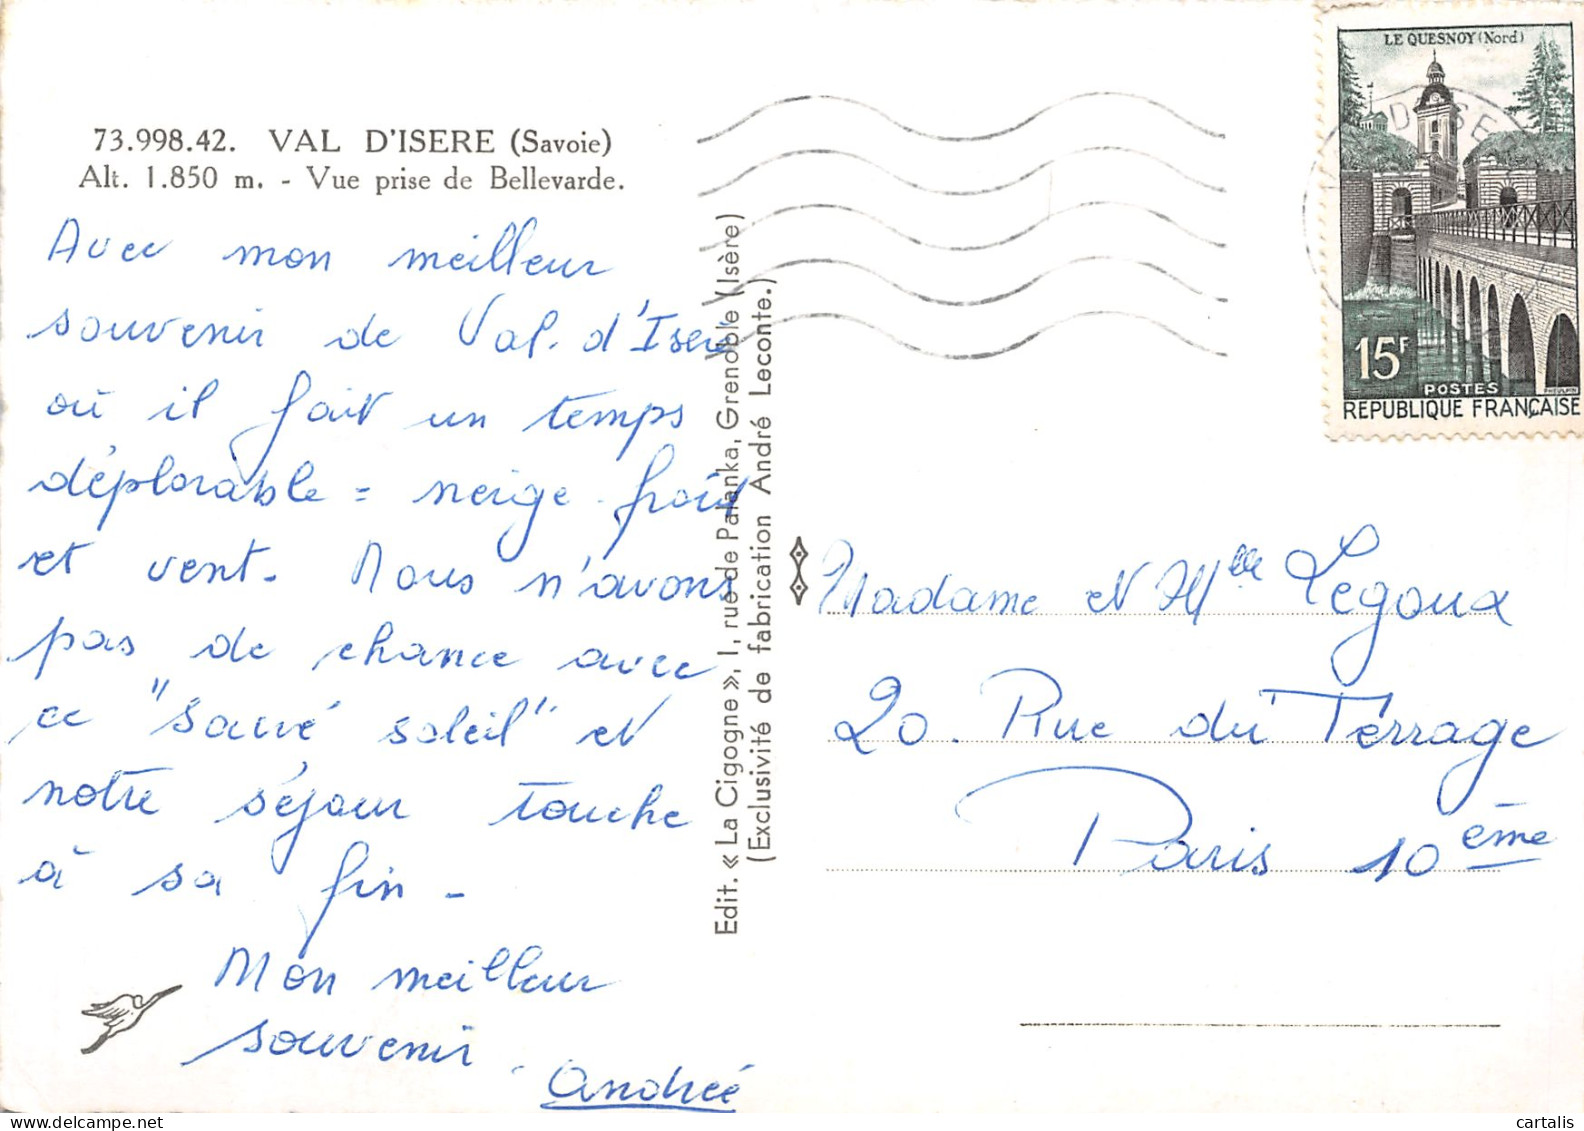 73.998.42. VAL D'ISERE (Savoie)
Alt. 1.850 m. - Vue prise de Bellevarde.
Avec mon meilleur
souvenir de Val. d'Isère
où il fait un temps
déplorable = neige - froid
et vent. Nous n'avons
pas de chance avec
ce "sacré soleil" et
notre séjour touche
à sa fin -
Mon meilleur
souvenir.
Andrée
Edit. « La Cigogne », 1, rue de Palanka, Grenoble (Isère)
(Exclusivité de fabrication André Leconte.)
LE QUESNOY (Nord)
15F
POSTES
REPUBLIQUE FRANÇAISE
Madame et Mlle Legoux
20. Rue du Terrage
Paris 10ème
cartalis